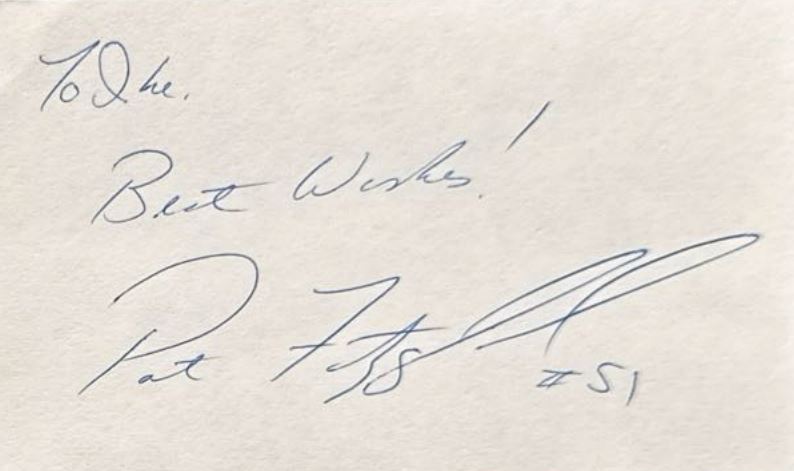 To Ike.
Best Wishes!
Pat Fitzgerald
#51